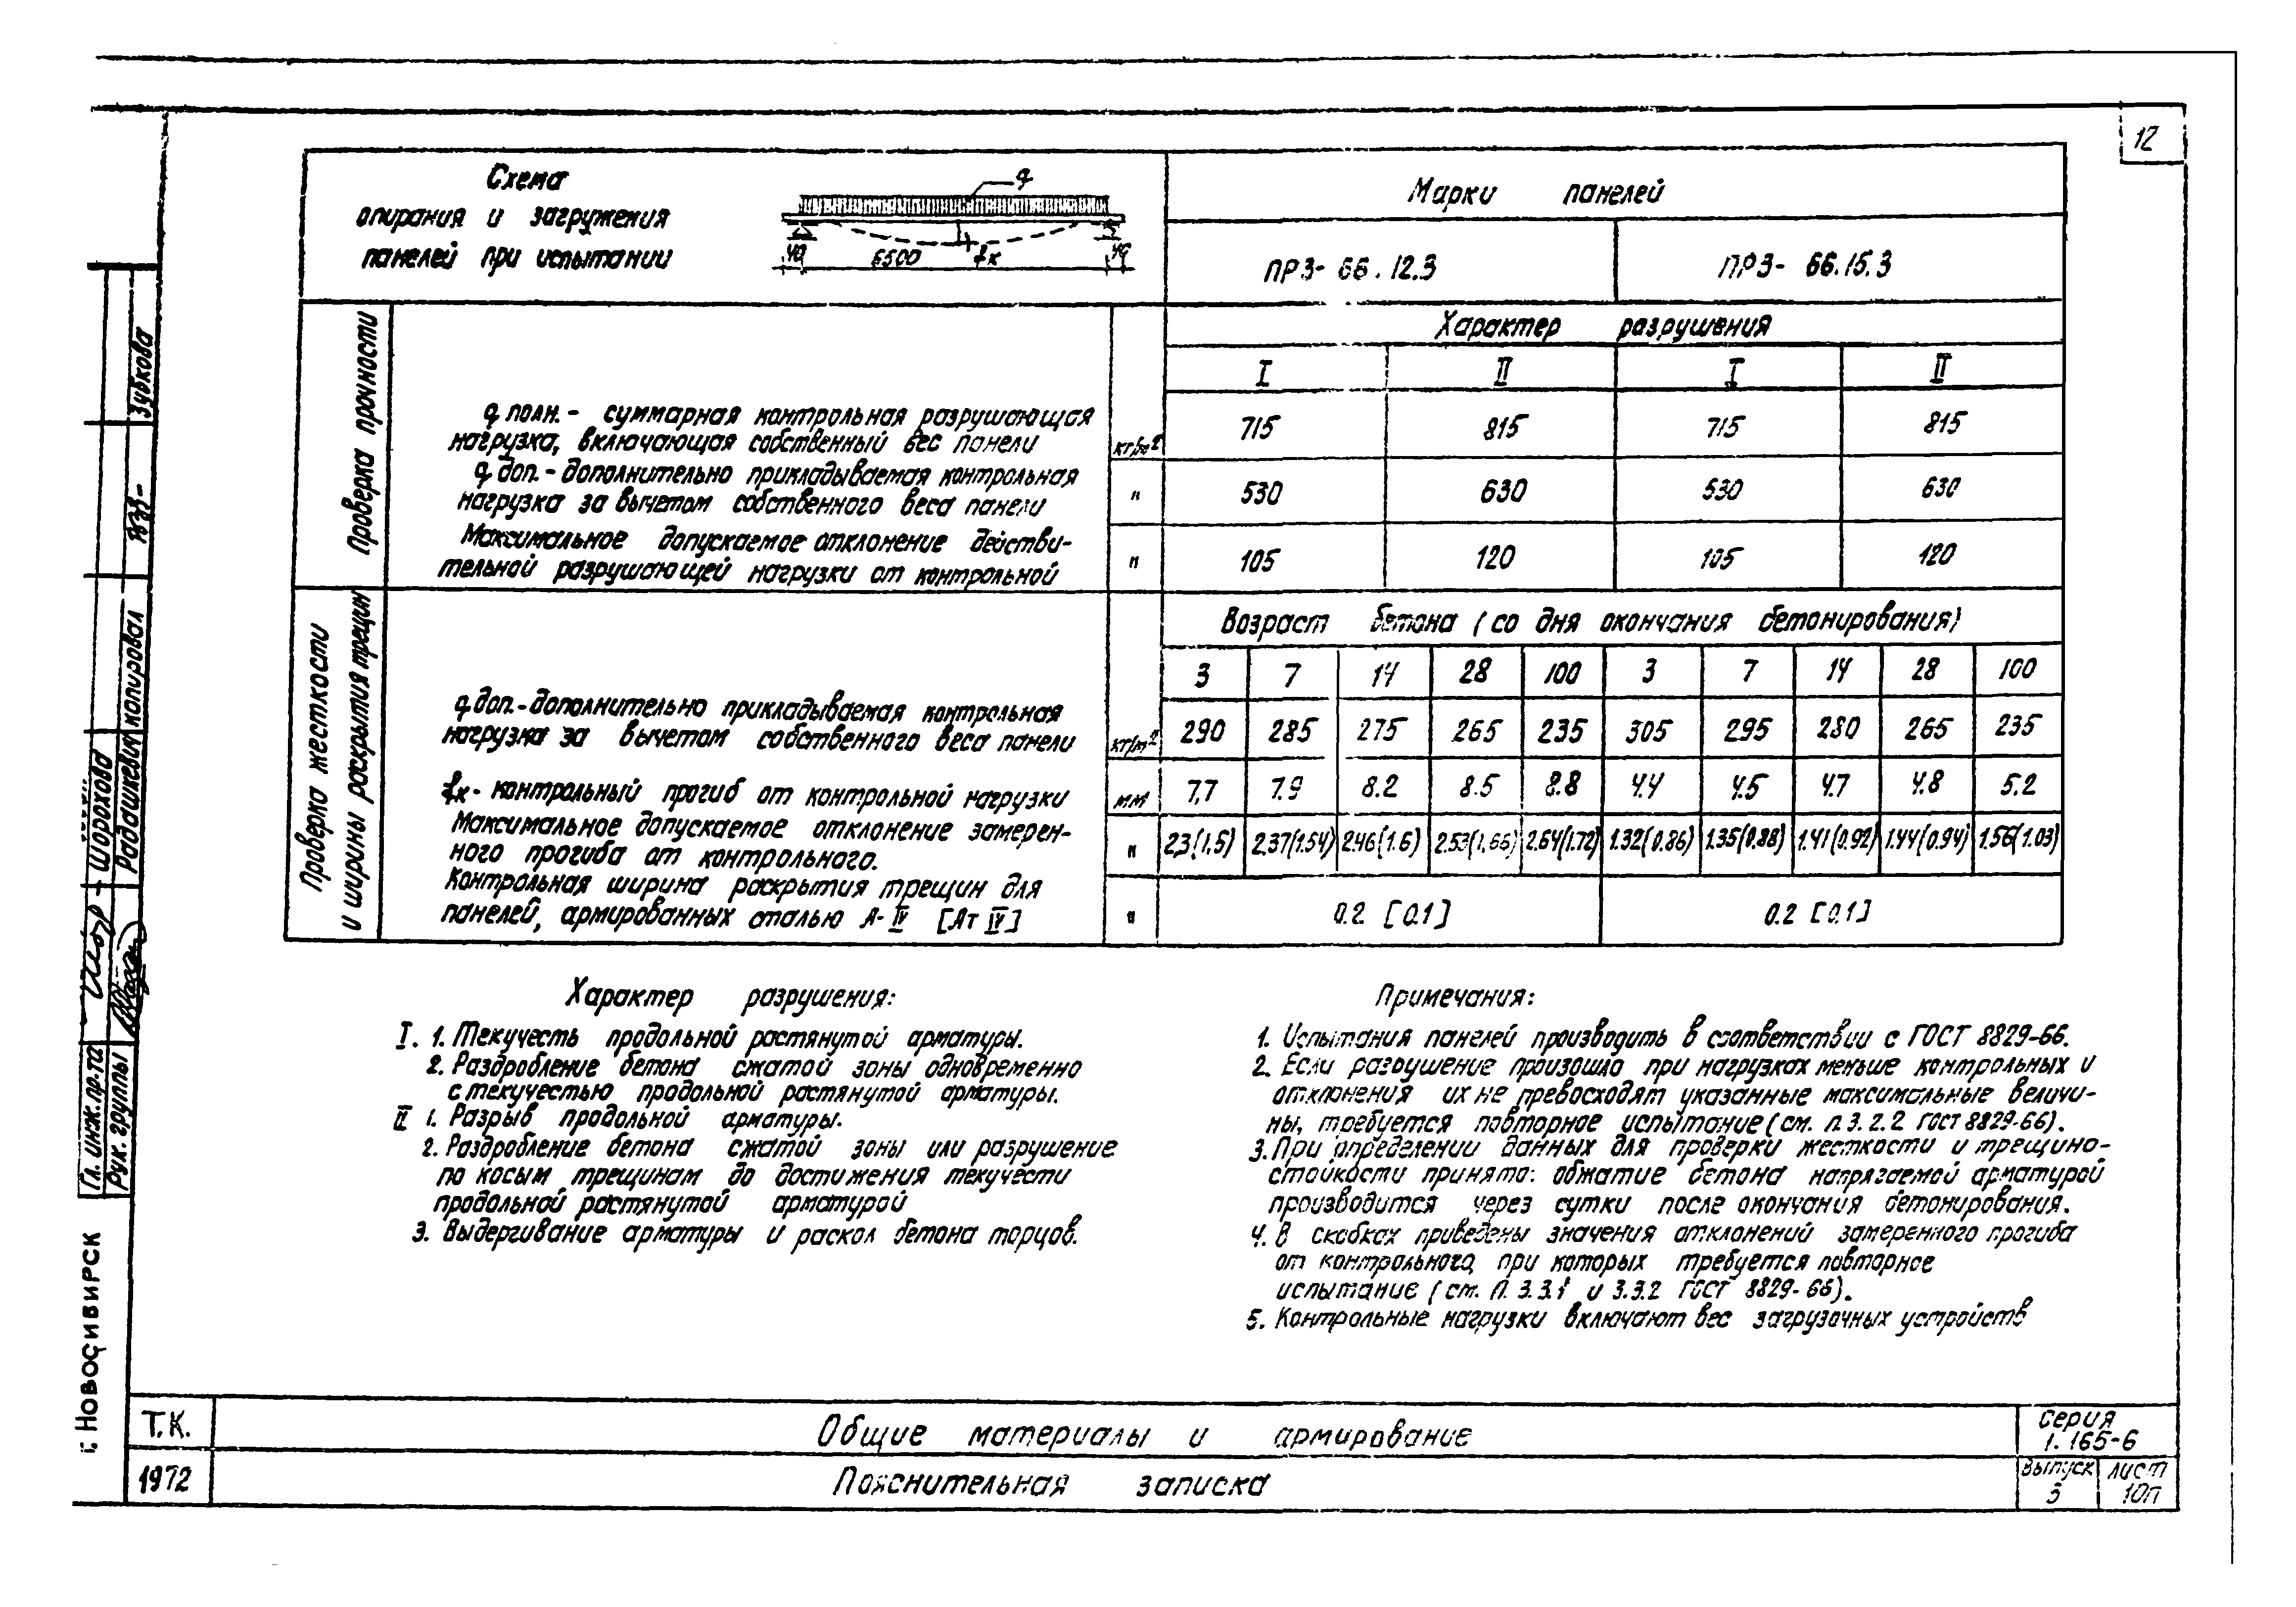 12
Схема
опирания и загружения
панелей при испытании
q
40 6500 fк 40
Марки панелей
ПРЗ- 66.12.3 ПРЗ- 66.15.3
Проверка прочности
Характер разрушения
I II I II
q полн. - суммарная контрольная разрушающая
нагрузка, включающая собственный вес панели
кг/м² 715 815 715 815
q доп. - дополнительно прикладываемая контрольная
нагрузка за вычетом собственного веса панели
" 530 630 530 630
Максимальное допускаемое отклонение действи-
тельной разрушающей нагрузки от контрольной
" 105 120 105 120
Проверка жесткости
и ширины раскрытия трещин
Возраст бетона (со дня окончания бетонирования)
3 7 14 28 100 3 7 14 28 100
q доп. - дополнительно прикладываемая контрольная
нагрузка за вычетом собственного веса панели
кг/м² 290 285 275 265 235 305 295 280 265 235
fк - контрольный прогиб от контрольной нагрузки
мм 7,7 7.9 8.2 8.5 8.8 4.4 4.5 4.7 4.8 5.2
Максимальное допускаемое отклонение замерен-
ного прогиба от контрольного.
" 2,3(1,5) 2,37(1.54) 2.46(1.6) 2.53(1,66) 2.64(1.72) 1.32(0.86) 1.35(0.88) 1.41(0.92) 1.44(0.94) 1.56(1.03)
Контрольная ширина раскрытия трещин для
панелей, армированных сталью А-IV [Ат IV]
" 0.2 [0.1] 0.2 [0.1]
Характер разрушения:
I. 1. Текучесть продольной растянутой арматуры.
2. Раздробление бетона сжатой зоны одновременно
с текучестью продольной растянутой арматуры.
II 1. Разрыв продольной арматуры.
2. Раздробление бетона сжатой зоны или разрушение
по косым трещинам до достижения текучести
продольной растянутой арматурой
3. Выдергивание арматуры и раскол бетона торцов.
Примечания:
1. Испытания панелей производить в соответствии с ГОСТ 8829-66.
2. Если разрушение произошло при нагрузках меньше контрольных и
отклонения их не превосходят указанные максимальные величи-
ны, требуется повторное испытание (см. п. 3.2.2 ГОСТ 8829-66).
3. При определении данных для проверки жесткости и трещино-
стойкости принято: обжатие бетона напрягаемой арматурой
производится через сутки после окончания бетонирования.
4. В скобках приведены значения отклонений замеренного прогиба
от контрольного, при которых требуется повторное
испытание (см. п. 3.3.1 и 3.3.2 ГОСТ 8829-66).
5. Контрольные нагрузки включают вес загрузочных устройств
Зубкова
копировал
Шорохова
Радашкевич
Гл. инж. пр-та
Рук. группы
г. Новосибирск
Т.К.
1972
Общие материалы и армирование
Пояснительная записка
серия
1.165-6
Выпуск лист
3 10п